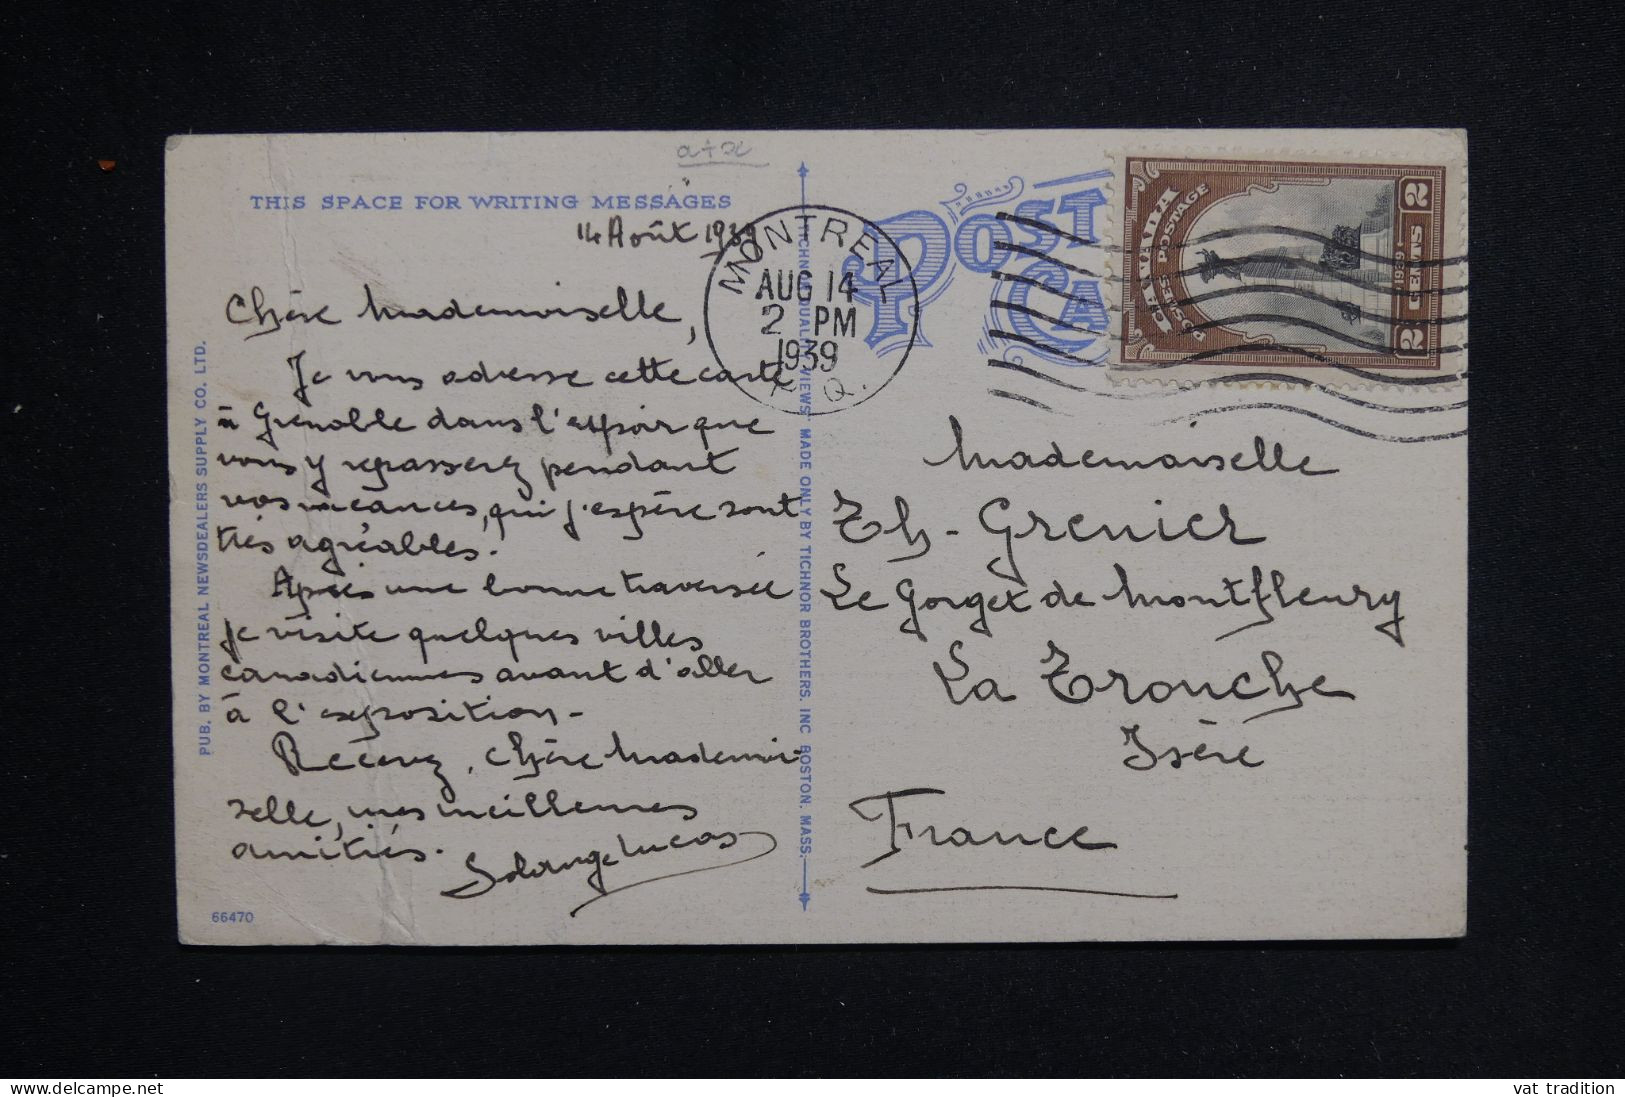 a+x
THIS SPACE FOR WRITING MESSAGES
14 Août 1939
Chère Mademoiselle,
Je vous adresse cette carte
à Grenoble dans l'espoir que
vous y repasserez pendant
vos vacances, qui j'espère sont
très agréables.
Après une bonne traversée
je visite quelques villes
canadiennes avant d'aller
à l'exposition-
Recevez, chère Mademoi-
selle, mes meilleures
amitiés.
Solange Lucas
66470
PUB. BY MONTREAL NEWSDEALERS SUPPLY CO. LTD.
TICHNOR QUALITY VIEWS MADE ONLY BY TICHNOR BROTHERS. INC BOSTON. MASS.
MONTREAL
AUG 14
2 PM
1939
P. Q.
POST
CA
CANADA
POSTAGE
POSTES
1939
2 CENTS 2
Mademoiselle
Th- Grenier
Le Gorget de Montfleury
La Tronche
Isère
France
vat tradition
delcampe.net